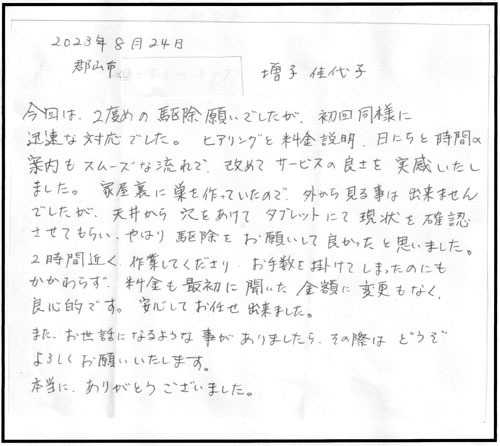 2023年8月24日
郡山市 増子 佳代子
今回は、2度めの駆除願いでしたが、初回同様に
迅速な対応でした。 ヒアリングと料金説明、日にちと時間の
案内もスムーズな流れで、改めてサービスの良さを実感いたし
ました。 家屋裏に巣を作っていたので、外から見る事は出来ません
でしたが、天井から穴をあけてタブレットにて現状を確認
させてもらい、やはり駆除をお願いして良かったと思いました。
2時間近く、作業してくださり、お手数を掛けてしまったのにも
かかわらず、料金も最初に聞いた金額に変更もなく、
良心的です。 安心してお任せ出来ました。
また、お世話になるような事がありましたら、その際はどうぞ
よろしくお願いいたします。
本当に、ありがとうございました。